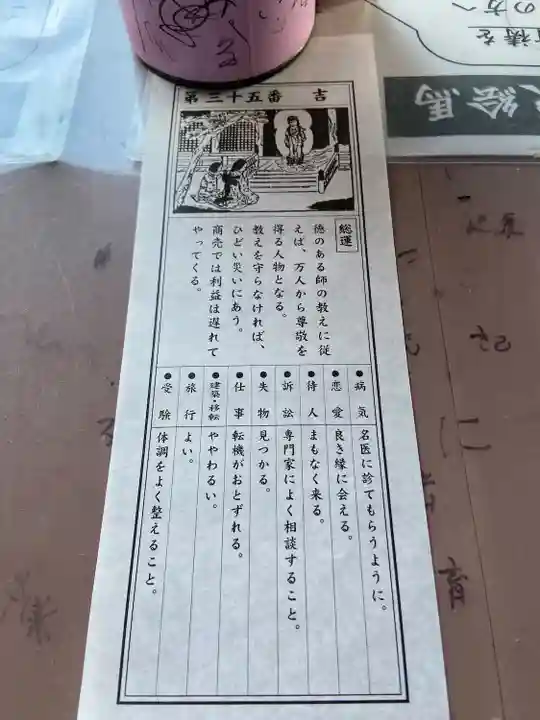 第三十五番 吉
総運
徳のある師の教えに従
えば、万人から尊敬を
得る人物となる。
教えを守らなければ、
ひどい災いにあう。
商売では利益は遅れて
やってくる。
●病気 名医に診てもらうように。
●恋愛 良き縁に会える。
●待人 まもなく来る。
●訴訟 専門家によく相談すること。
●失物 見つかる。
●仕事 転機がおとずれる。
●建築・移転 ややわるい。
●旅行 よい。
●受験 体調をよく整えること。
絵馬
の方へ
祷を
に
育